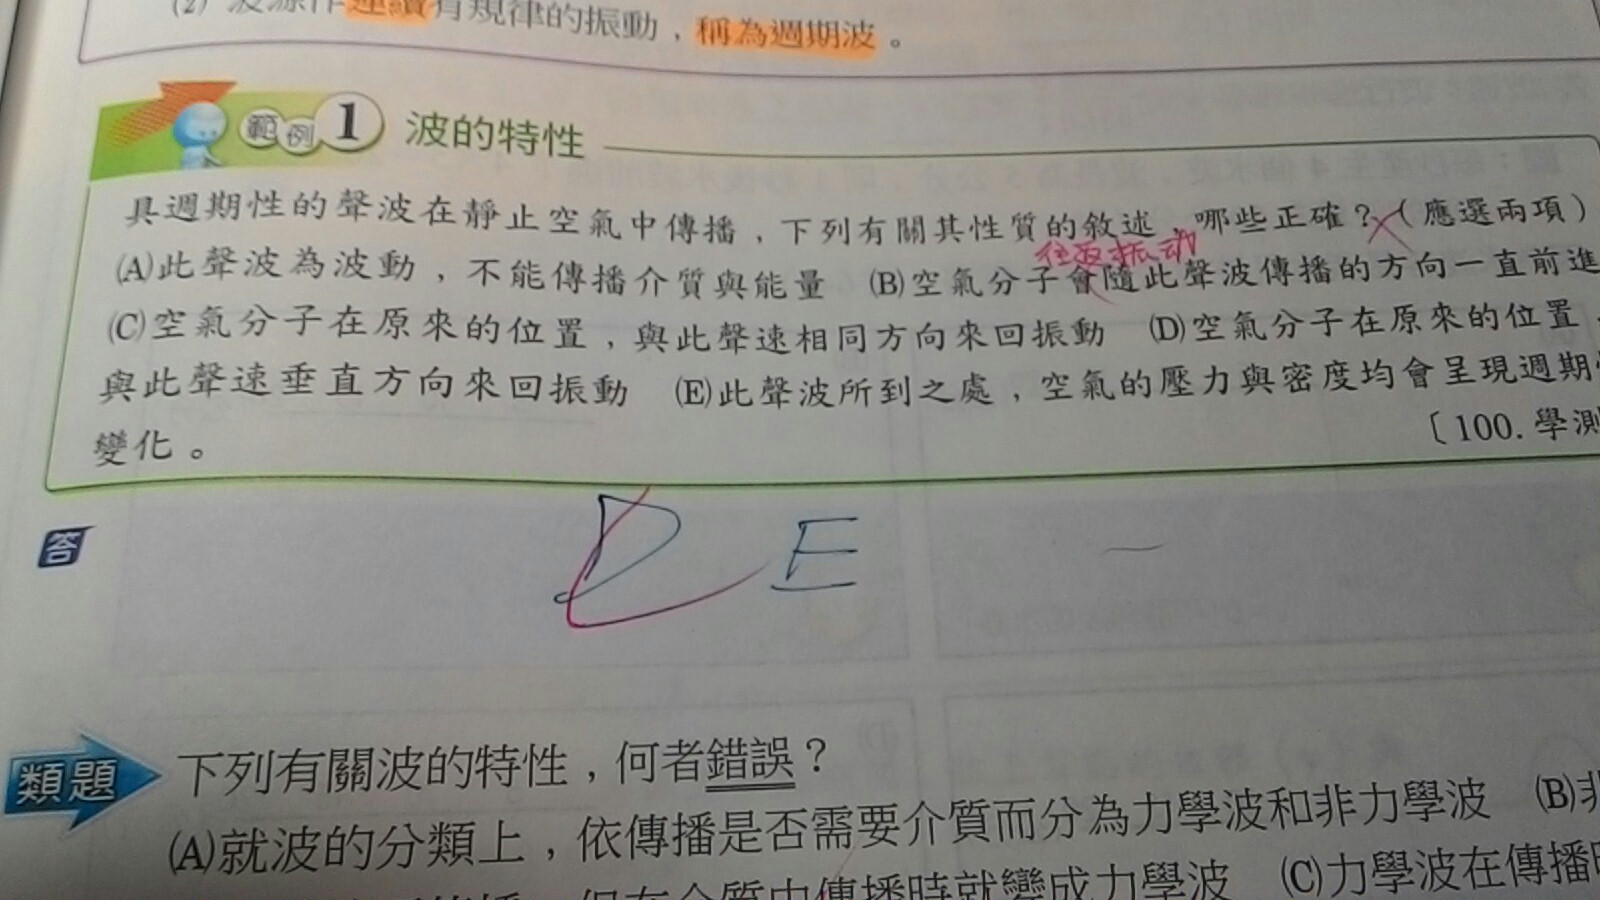 (2) 波源作連續有規律的振動，稱為週期波。
範例1 波的特性
具週期性的聲波在靜止空氣中傳播，下列有關其性質的敘述，哪些正確？（應選兩項）
往返振动
(A)此聲波為波動，不能傳播介質與能量 (B)空氣分子會隨此聲波傳播的方向一直前進
(C)空氣分子在原來的位置，與此聲速相同方向來回振動 (D)空氣分子在原來的位置，
與此聲速垂直方向來回振動 (E)此聲波所到之處，空氣的壓力與密度均會呈現週期
變化。
〔100.學測
答
D E
類題 下列有關波的特性，何者錯誤？
(A)就波的分類上，依傳播是否需要介質而分為力學波和非力學波 (B)
在介質中傳播時就變成力學波 (C)力學波在傳播